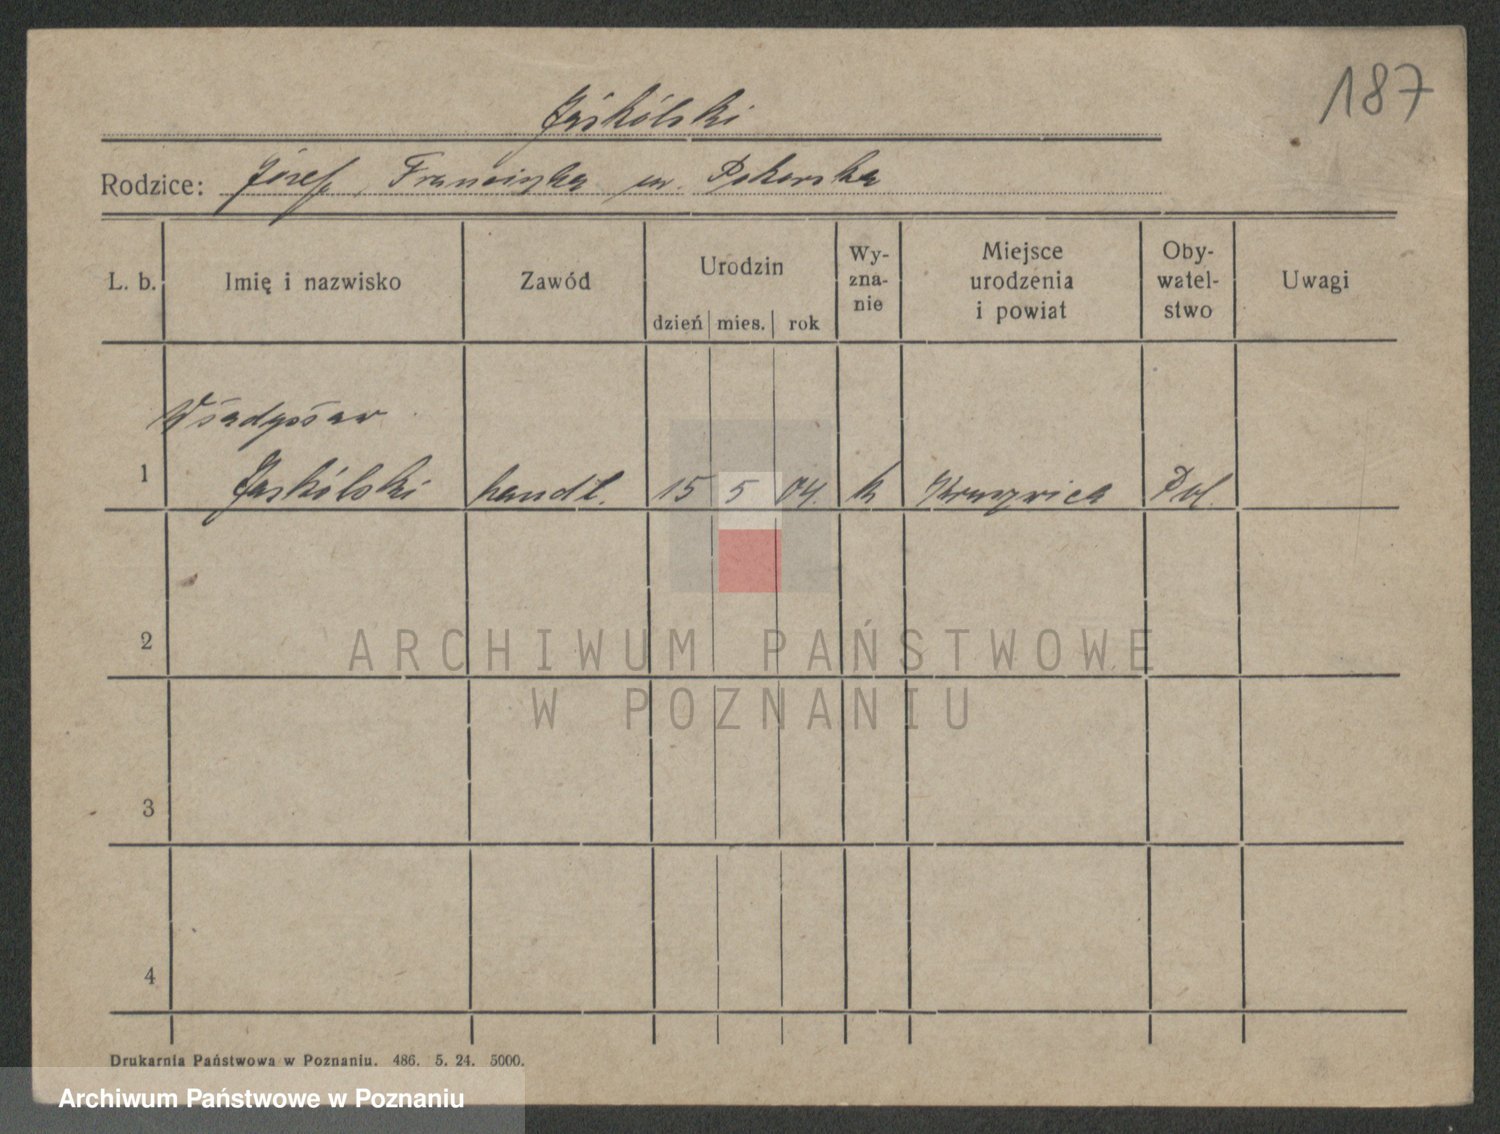 187
Jaskólski
Rodzice: Józef, Franciszka ur. Pokorska
L. b.
Imię i nazwisko
Zawód
Urodzin
dzień mies. rok
Wy-
zna-
nie
Miejsce
urodzenia
i powiat
Oby-
watel-
stwo
Uwagi
Władysław
1 Jaskólski handl. 15 5 04. k Kruszwica Pol.
2
3
4
ARCHIWUM PAŃSTWOWE
W POZNANIU
Drukarnia Państwowa w Poznaniu. 486. 5. 24. 5000.
Archiwum Państwowe w Poznaniu